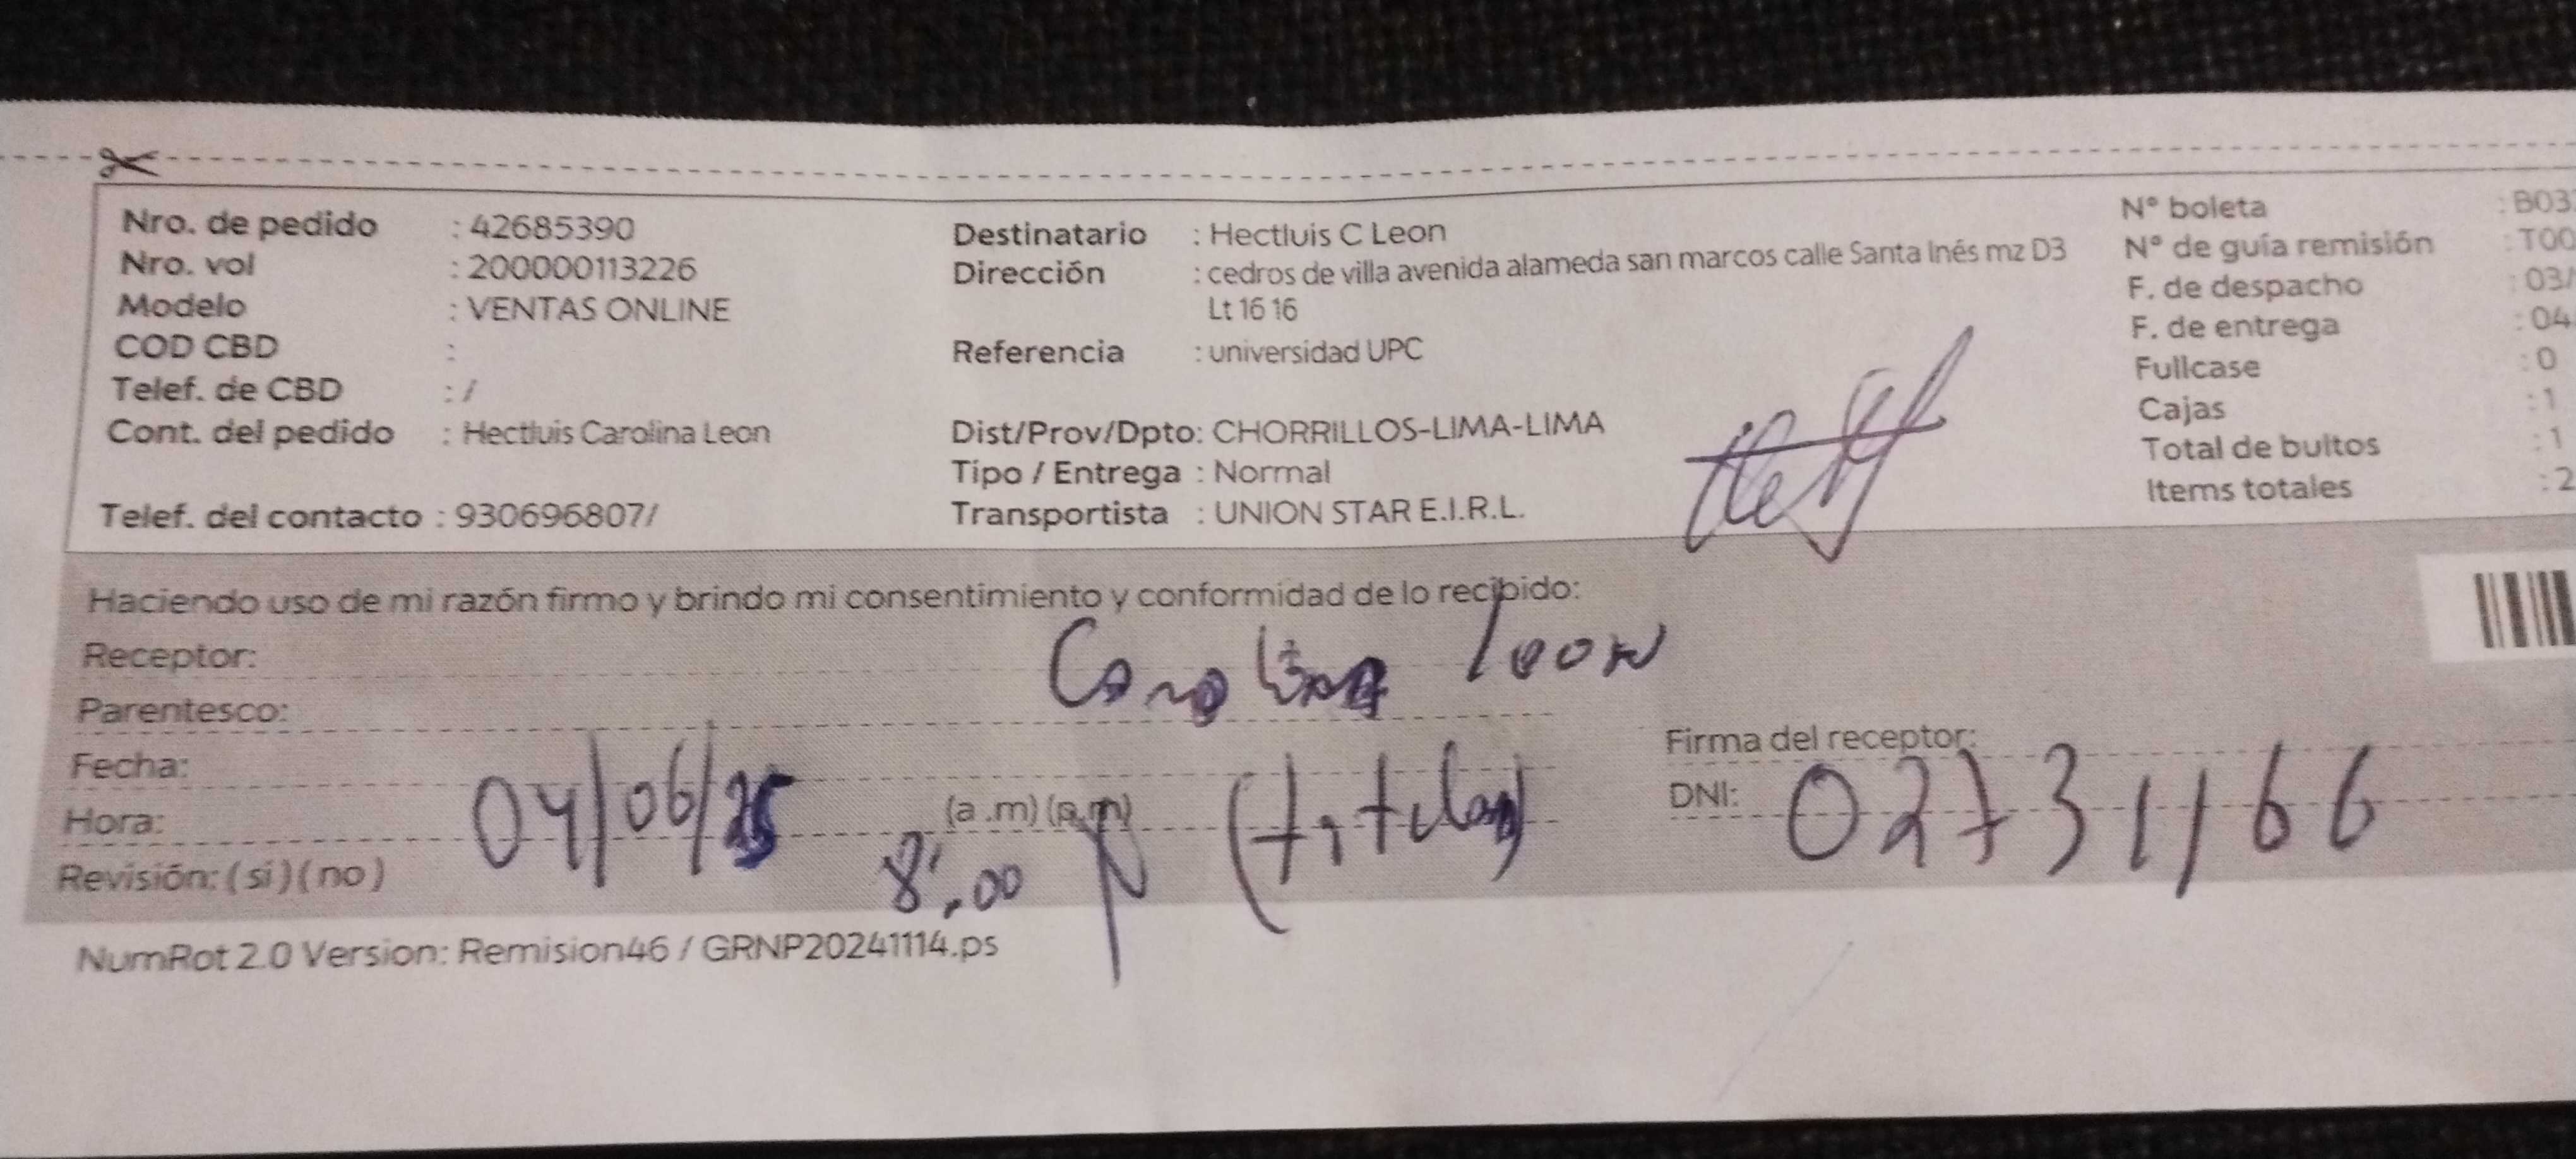 Nro. de pedido : 42685390
Nro. vol : 200000113226
Modelo : VENTAS ONLINE
COD CBD :
Telef. de CBD : /
Cont. del pedido : Hectluis Carolina Leon
Telef. del contacto : 930696807/
Destinatario : Hectluis C Leon
Dirección : cedros de villa avenida alameda san marcos calle Santa Inés mz D3
Lt 16 16
Referencia : universidad UPC
Dist/Prov/Dpto: CHORRILLOS-LIMA-LIMA
Tipo / Entrega : Normal
Transportista : UNION STAR E.I.R.L.
N° boleta : B03
N° de guía remisión : T00
F. de despacho : 03/
F. de entrega : 04
Fullcase : 0
Cajas : 1
Total de bultos : 1
Items totales : 2
Haciendo uso de mi razón firmo y brindo mi consentimiento y conformidad de lo recibido:
Receptor: Carolina Leon
Parentesco:
Fecha: 04/06/25
Hora: 8:00 (a.m) (p.m) (titular)
Revisión: (si) (no)
Firma del receptor:
DNI: 02731166
NumRot 2.0 Version: Remision46 / GRNP20241114.ps